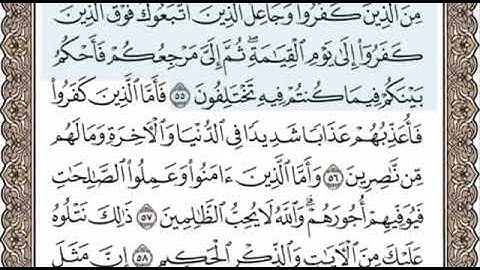 مِنَ ٱلَّذِينَ كَفَرُوا۟ وَجَاعِلُ ٱلَّذِينَ ٱتَّبَعُوكَ فَوْقَ ٱلَّذِينَ
كَفَرُوٓا۟ إِلَىٰ يَوْمِ ٱلْقِيَـٰمَةِ ۖ ثُمَّ إِلَىَّ مَرْجِعُكُمْ فَأَحْكُمُ
بَيْنَكُمْ فِيمَا كُنتُمْ فِيهِ تَخْتَلِفُونَ ٥٥ فَأَمَّا ٱلَّذِينَ كَفَرُوا۟
فَأُعَذِّبُهُمْ عَذَابًا شَدِيدًا فِى ٱلدُّنْيَا وَٱلْـَٔاخِرَةِ وَمَا لَهُم
مِّن نَّـٰصِرِينَ ٥٦ وَأَمَّا ٱلَّذِينَ ءَامَنُوا۟ وَعَمِلُوا۟ ٱلصَّـٰلِحَـٰتِ
فَيُوَفِّيهِمْ أُجُورَهُمْ ۗ وَٱللَّهُ لَا يُحِبُّ ٱلظَّـٰلِمِينَ ٥٧ ذَٰلِكَ نَتْلُوهُ
عَلَيْكَ مِنَ ٱلْـَٔايَـٰتِ وَٱلذِّكْرِ ٱلْحَكِيمِ ٥٨ إِنَّ مَثَلَ